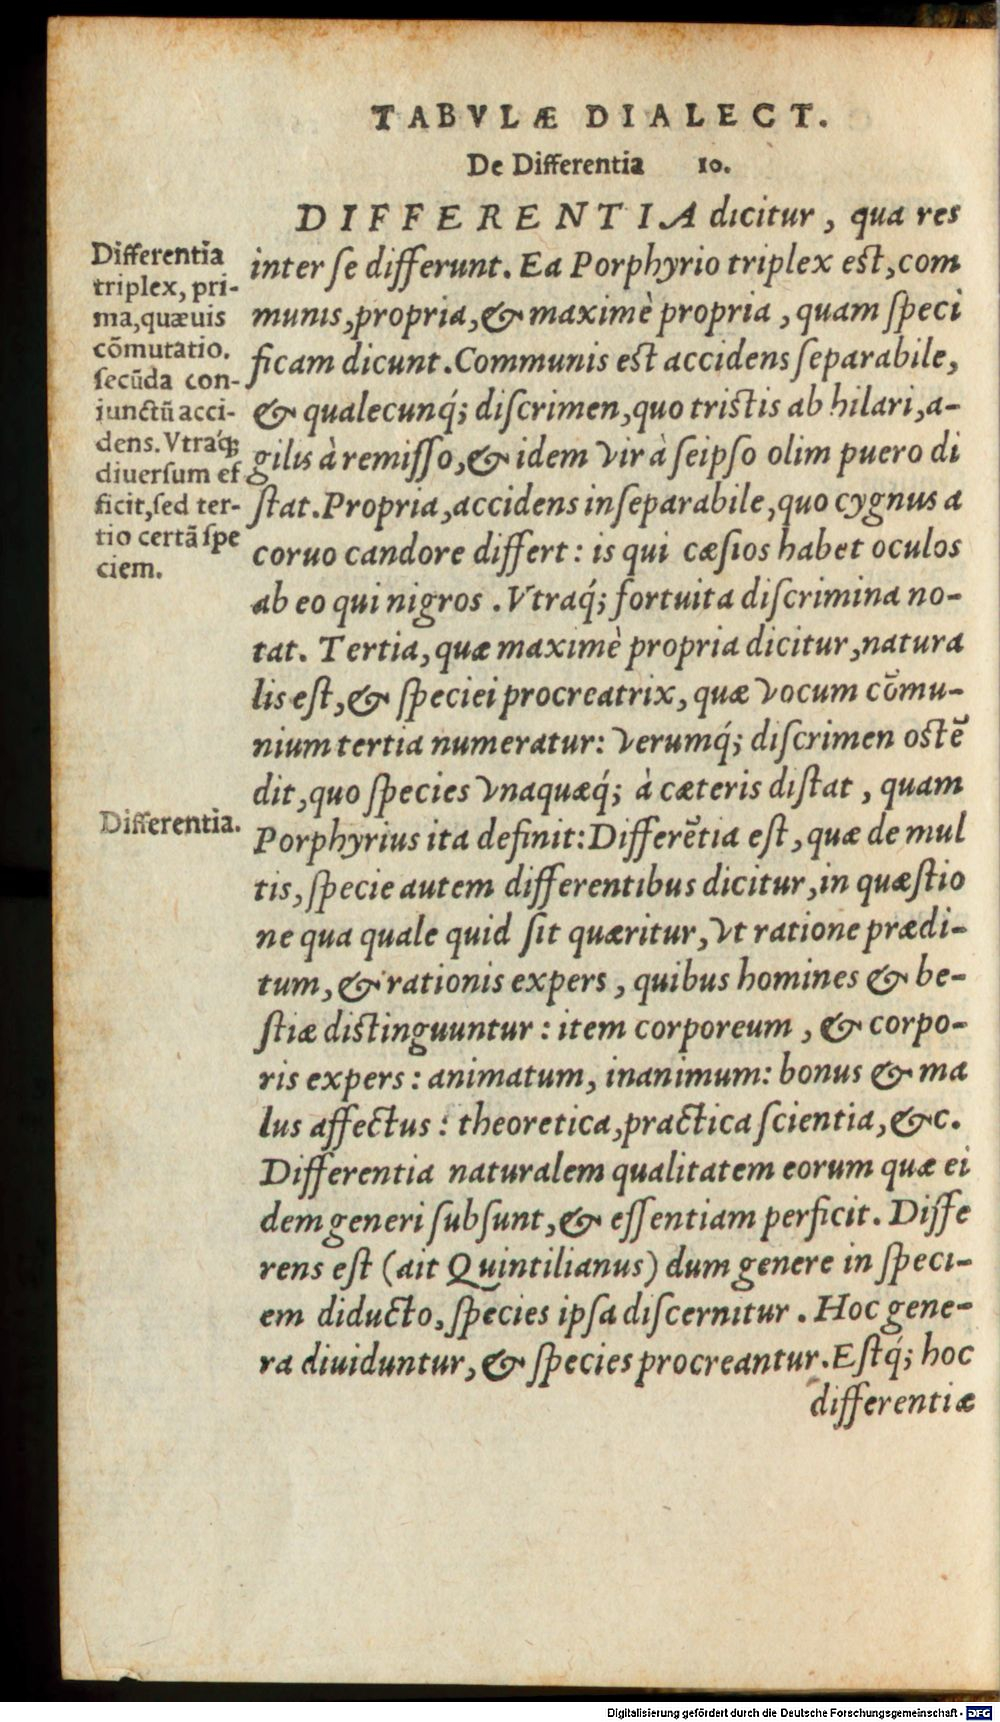 TABVLÆ DIALECT.
De Differentia 10.
DIFFERENTIA dicitur, qua res
inter se differunt. Ea Porphyrio triplex est, com
munis, propria, & maximè propria, quam speci
ficam dicunt. Communis est accidens separabile,
& qualecunq́; discrimen, quo tristis ab hilari, a-
gilis à remisso, & idem vir à seipso olim puero di
stat. Propria, accidens inseparabile, quo cygnus a
coruo candore differt: is qui cæsios habet oculos
ab eo qui nigros. Vtraq́; fortuita discrimina no-
tat. Tertia, quæ maximè propria dicitur, natura
lis est, & speciei procreatrix, quæ vocum cōmu-
nium tertia numeratur: verumq́; discrimen ostē
dit, quo species vnaquæq́; à cæteris distat, quam
Porphyrius ita definit: Differētia est, quæ de mul
tis, specie autem differentibus dicitur, in quæstio
ne qua quale quid sit quæritur, vt ratione prædi-
tum, & rationis expers, quibus homines & be-
stiæ distinguuntur: item corporeum, & corpo-
ris expers: animatum, inanimum: bonus & ma
lus affectus: theoretica, practica scientia, &c.
Differentia naturalem qualitatem eorum quæ ei
dem generi subsunt, & essentiam perficit. Diffe
rens est (ait Quintilianus) dum genere in speci-
em diducto, species ipsa discernitur. Hoc gene-
ra diuiduntur, & species procreantur. Estq́; hoc
differentiæ
Differentia
triplex, pri-
ma, quæuis
cōmutatio.
secūda con-
iunctū acci-
dens. Vtraq́;
diuersum ef
ficit, sed ter-
tio certā spe
ciem.
Differentia.
Digitalisierung gefördert durch die Deutsche Forschungsgemeinschaft - DFG